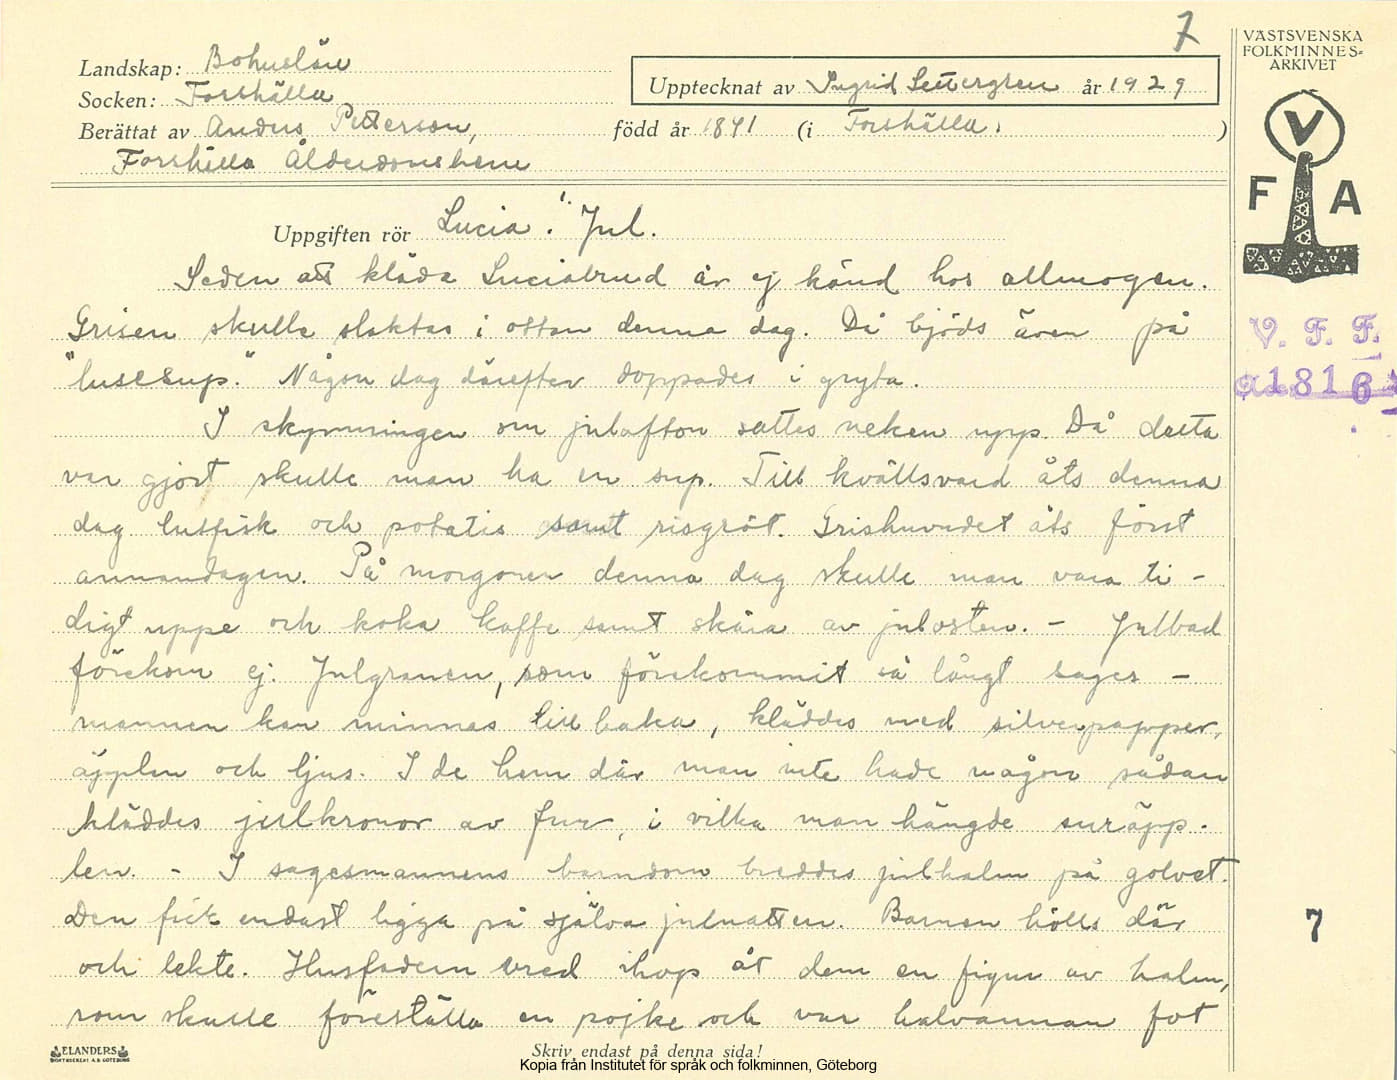 7
VÄSTSVENSKA
FOLKMINNES=
ARKIVET
V
F A
Landskap: Bohuslän
Socken: Forshälla
Upptecknat av Ingrid Settergren år 1929
Berättat av Anders Petterson, född år 1841 (i Forshälla. )
Forshälla Ålderdomshem
Uppgiften rör Lucia. Jul.
Seden att kläda Luciabrud är ej känd hos allmogen.
Grisen skulle slaktas i ottan denna dag. Då bjöds även på
"lusesup." Någon dag därefter doppades i gryta.
I skymningen om julafton sattes neken upp. Då detta
var gjort skulle man ha en sup. Till kvällsvard åts denna
dag lutfisk och potatis samt risgröt. Grishuvudet åts först
annandagen. På morgonen denna dag skulle man vara ti-
digt uppe och koka kaffe samt skära av julosten. - Julbad
förekom ej. Julgranen, som förekommit så långt sages-
mannen kan minnas tillbaka, kläddes med silverpapper,
äpplen och ljus. I de hem där man inte hade någon sådan
kläddes julkronor av fur, i vilka man hängde suräpp-
len. - I sagesmannens barndom breddes julhalm på golvet.
Den fick endast ligga på själva julnatten. Barnen hölls där
och lekte. Husfadern vred ihop åt dem en figur av halm,
som skulle föreställa en pojke och var halvannan fot
V. F. F.
1816
7
ELANDERS
BOKTRYCKERI A.B. GÖTEBORG
Skriv endast på denna sida!
Kopia från Institutet för språk och folkminnen, Göteborg